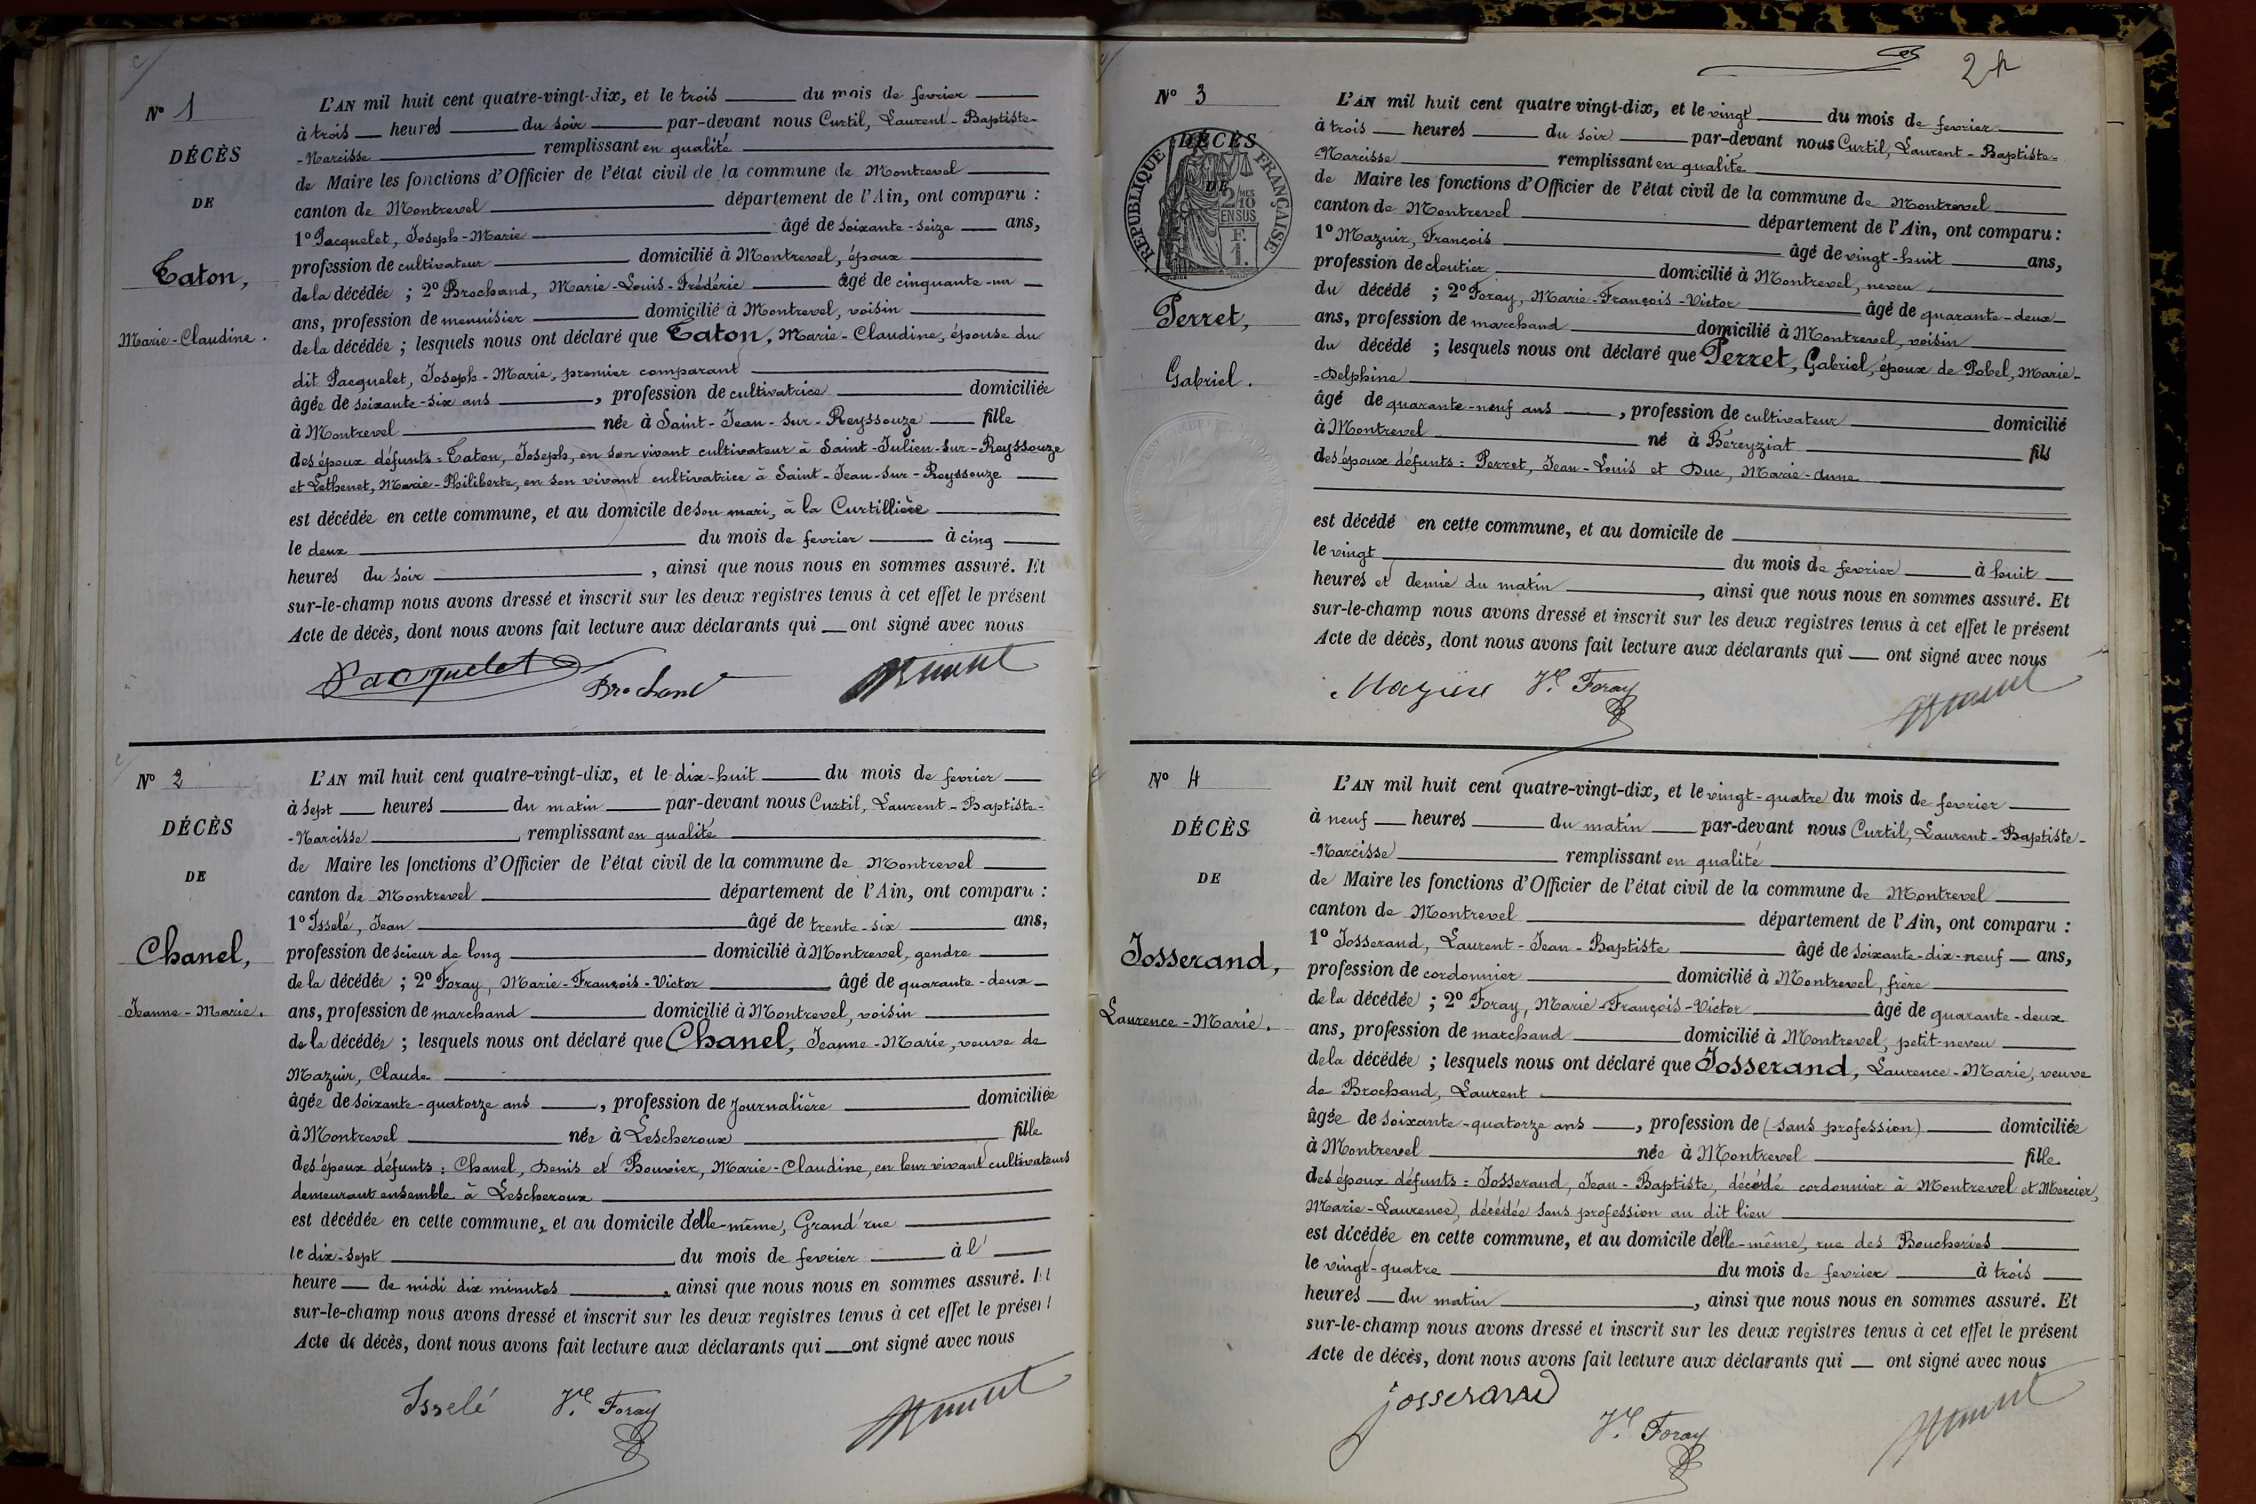 N° 1
DÉCÈS
DE
Caton,
Marie-Claudine.
L'AN mil huit cent quatre-vingt-dix, et le trois du mois de fevrier
à trois heures du soir par-devant nous Curtil, Laurent-Baptiste-
-Narcisse remplissant en qualité
de Maire les fonctions d'Officier de l'état civil de la commune de Montrevel
canton de Montrevel département de l'Ain, ont comparu :
1° Pacquelet, Joseph-Marie âgé de soixante-seize ans,
profession de cultivateur domicilié à Montrevel, époux
de la décédée ; 2° Brochand, Marie-Louis-Frédéric âgé de cinquante-un
ans, profession de menuisier domicilié à Montrevel, voisin
de la décédée ; lesquels nous ont déclaré que Caton, Marie-Claudine, épouse du
dit Pacquelet, Joseph-Marie, premier comparant
âgée de soixante-six ans , profession de cultivatrice domiciliée
à Montrevel née à Saint-Jean-sur-Reyssouze fille
des époux défunts = Caton, Joseph, en son vivant cultivateur à Saint-Julien-sur-Reyssouze
et Lethenet, Marie-Philiberte, en son vivant cultivatrice à Saint-Jean-sur-Reyssouze
est décédée en cette commune, et au domicile de son mari, à la Curtillière
le deux du mois de fevrier à cinq
heures du soir , ainsi que nous nous en sommes assuré. Et
sur-le-champ nous avons dressé et inscrit sur les deux registres tenus à cet effet le présent
Acte de décès, dont nous avons fait lecture aux déclarants qui ont signé avec nous
Pacquelet Brochand
N° 2
DÉCÈS
DE
Chanel,
Jeanne-Marie.
L'AN mil huit cent quatre-vingt-dix, et le dix-huit du mois de fevrier
à sept heures du matin par-devant nous Curtil, Laurent-Baptiste-
-Narcisse remplissant en qualité
de Maire les fonctions d'Officier de l'état civil de la commune de Montrevel
canton de Montrevel département de l'Ain, ont comparu :
1° Isselé, Jean âgé de trente-six ans,
profession de scieur de long domicilié à Montrevel, gendre
de la décédée ; 2° Foray, Marie-François-Victor âgé de quarante-deux
ans, profession de marchand domicilié à Montrevel, voisin
de la décédée ; lesquels nous ont déclaré que Chanel, Jeanne-Marie, veuve de
Mazuir, Claude
âgée de soixante-quatorze ans , profession de journalière domiciliée
à Montrevel née à Lescheroux fille
des époux défunts : Chanel, Denis et Bouvier, Marie-Claudine, en leur vivant cultivateurs
demeurant ensemble à Lescheroux
est décédée en cette commune, et au domicile d'elle-même, Grand'rue
le dix-sept du mois de fevrier à l'
heure de midi dix minutes , ainsi que nous nous en sommes assuré. Et
sur-le-champ nous avons dressé et inscrit sur les deux registres tenus à cet effet le présent
Acte de décès, dont nous avons fait lecture aux déclarants qui ont signé avec nous
Isselé Vor Foray
2
N° 3
DÉCÈS
DE
RÉPUBLIQUE FRANÇAISE
2/10 MES
EN SUS
F.
1.
Perret,
Gabriel.
L'AN mil huit cent quatre vingt-dix, et le vingt du mois de fevrier
à trois heures du soir par-devant nous Curtil, Laurent-Baptiste-
-Narcisse remplissant en qualité
de Maire les fonctions d'Officier de l'état civil de la commune de Montrevel
canton de Montrevel département de l'Ain, ont comparu :
1° Mazuir, François âgé de vingt-huit ans,
profession de cloutier domicilié à Montrevel, neveu
du décédé ; 2° Foray, Marie-François-Victor âgé de quarante-deux
ans, profession de marchand domicilié à Montrevel, voisin
du décédé ; lesquels nous ont déclaré que Perret, Gabriel, époux de Pobel, Marie-
-Delphine
âgé de quarante-neuf ans , profession de cultivateur domicilié
à Montrevel né à Béreyziat fils
des époux défunts : Perret, Jean-Louis et Duc, Marie-Anne
est décédé en cette commune, et au domicile de
le vingt du mois de fevrier à huit
heures et demie du matin , ainsi que nous nous en sommes assuré. Et
sur-le-champ nous avons dressé et inscrit sur les deux registres tenus à cet effet le présent
Acte de décès, dont nous avons fait lecture aux déclarants qui ont signé avec nous
Mazuir Vor Foray
N° 4
DÉCÈS
DE
Josserand,
Laurence-Marie.
L'AN mil huit cent quatre-vingt-dix, et le vingt-quatre du mois de fevrier
à neuf heures du matin par-devant nous Curtil, Laurent-Baptiste-
-Narcisse remplissant en qualité
de Maire les fonctions d'Officier de l'état civil de la commune de Montrevel
canton de Montrevel département de l'Ain, ont comparu :
1° Josserand, Laurent-Jean-Baptiste âgé de soixante-dix-neuf ans,
profession de cordonnier domicilié à Montrevel, frère
de la décédée ; 2° Foray, Marie-François-Victor âgé de quarante-deux
ans, profession de marchand domicilié à Montrevel, petit-neveu
de la décédée ; lesquels nous ont déclaré que Josserand, Laurence-Marie, veuve
de Brochand, Laurent
âgée de soixante-quatorze ans , profession de (sans profession) domiciliée
à Montrevel née à Montrevel fille
des époux défunts = Josserand, Jean-Baptiste, décédé cordonnier à Montrevel et Mercier,
Marie-Laurence, décédée sans profession au dit lieu
est décédée en cette commune, et au domicile d'elle-même, rue des Boucheries
le vingt-quatre du mois de fevrier à trois
heures du matin , ainsi que nous nous en sommes assuré. Et
sur-le-champ nous avons dressé et inscrit sur les deux registres tenus à cet effet le présent
Acte de décès, dont nous avons fait lecture aux déclarants qui ont signé avec nous
josserand
Vor Foray